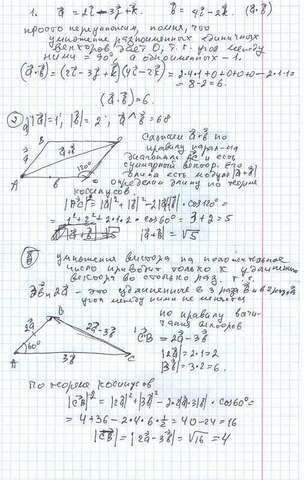 1. a = 2i - 3j + k. b = 4i - 2k. (a·b)
просто перемножим, помня, что
умножение разноименных единичных
векторов дает 0, т.к. угол между
ними = 90°, а одноименных - 1.
(a·b) = (2i - 3j + k)(4i - 2k) = 2·4·1+0+0+0-2·1·1=
= 8-2=6.
(a·b) = 6.
2) |a|=1, |b|=2, a^b=60
a)
Сложим a+b по
правилу парал-ма
диагональ и есть
суммарный вектор. Его
длина есть модуль |a+b|
Определим длину по теореме
косинусов.
a
a+b
120°
A
b
·cos120°=
= 1²+2²+2·1·2·cos60°= 3+2=5
|a+b| = √5
умножения вектора на положительное
число приводит только к удлинению
вектора во столько раз, т.е.
3b и 2a - это удлиненные в 3 раза b и в 2 раза a
угол между ними не меняется
по правилу вычи-
тания векторов
B
2a
2a-3b
60°
A
3b
C
CB = 2a-3b
|2a| = 2·1=2
|3b| = 3·2=6.
По теореме косинусов
|CB|² = |2a|²+|3b|²-2·|2a|·|3b|·cos60°=
= 4+36-2·2·6·½ = 40-24=16
|CB| = |2a-3b| = √16 = 4